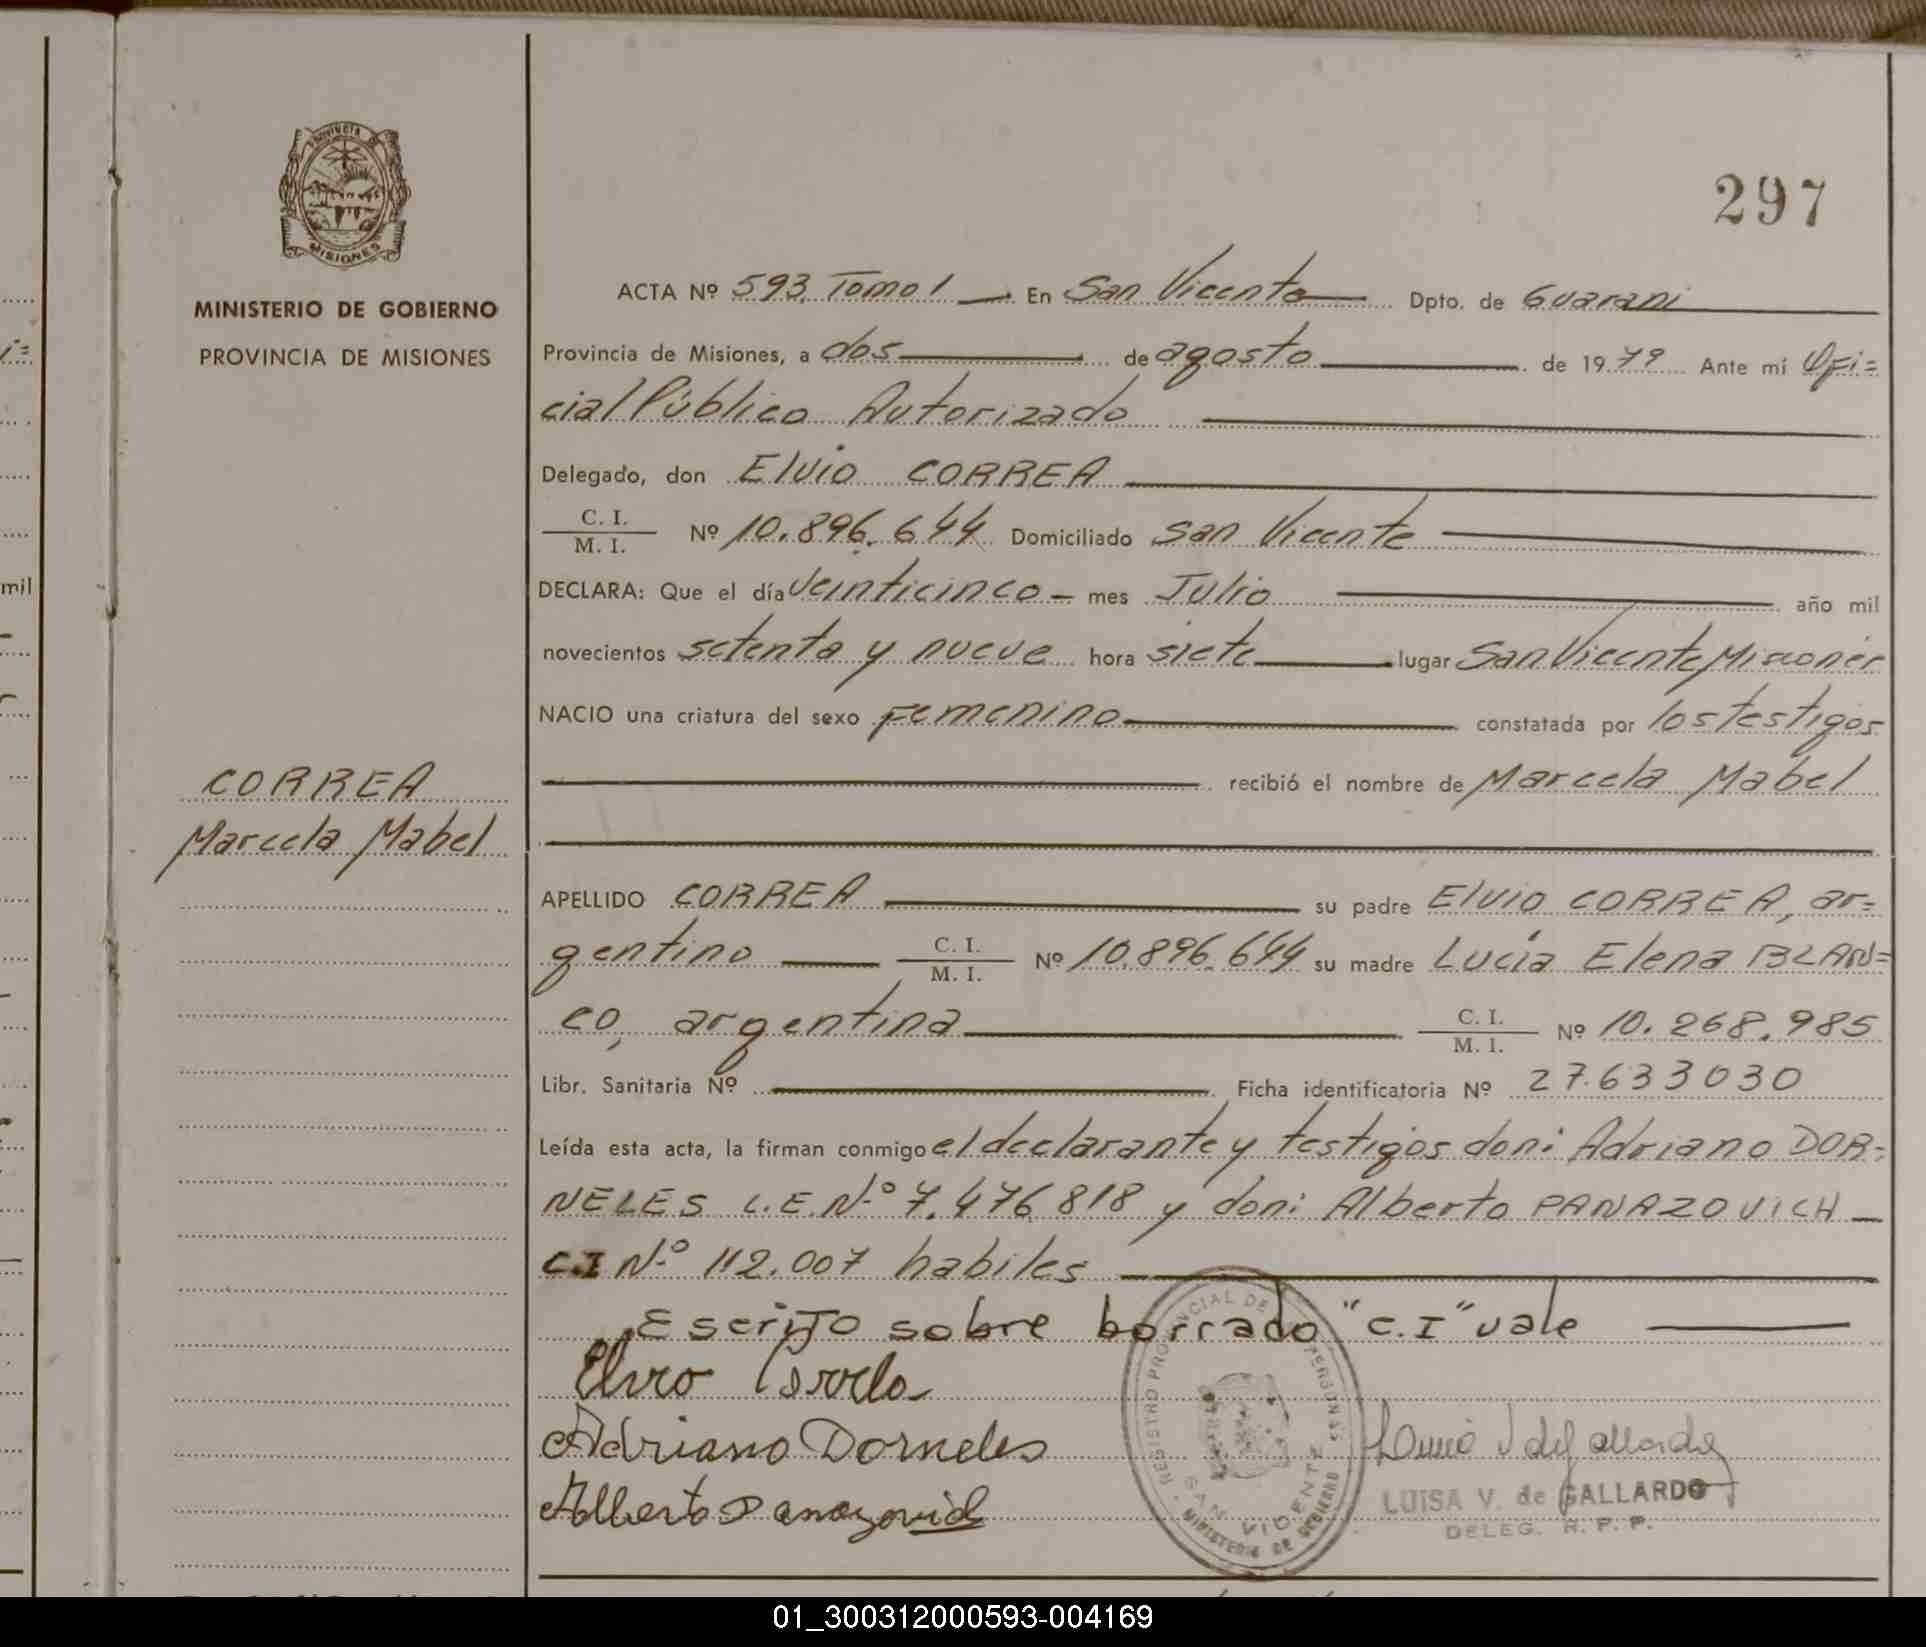 PROVINCIA DE
MISIONES
MINISTERIO DE GOBIERNO
PROVINCIA DE MISIONES
CORREA
Marcela Mabel
297
ACTA Nº 593 Tomo 1 En San Vicente Dpto. de Guarani
Provincia de Misiones, a dos de agosto de 1979 Ante mí Ofi=
cial Público Autorizado
Delegado, don Elvio CORREA
C. I.
M. I. Nº 10.896.644 Domiciliado San Vicente
DECLARA: Que el día veinticinco - mes Julio año mil
novecientos setenta y nueve hora siete lugar San Vicente Misiones
NACIO una criatura del sexo Femenino constatada por los testigos
recibió el nombre de Marcela Mabel
APELLIDO CORREA su padre Elvio CORREA, ar=
gentino C. I. M. I. Nº 10.896.644 su madre Lucía Elena BLAN=
co, argentina C. I. M. I. Nº 10.268.985
Libr. Sanitaria Nº Ficha identificatoria Nº 27.633030
Leída esta acta, la firman conmigo el declarante y testigos don: Adriano DOR=
NELES L.E. Nº 7.476.818 y don: Alberto PANAZOVICH
C.I Nº 112.007 habiles
Escrito sobre borrado "C.I" vale
Elvio Correa
Adriano Dorneles
Alberto Panazovich
REGISTRO PROVINCIAL DE PERSONAS
SAN VICENTE
MINISTERIO DE GOBIERNO
LUISA V. de GALLARDO
DELEG. R. P. P.
mil
01_300312000593-004169